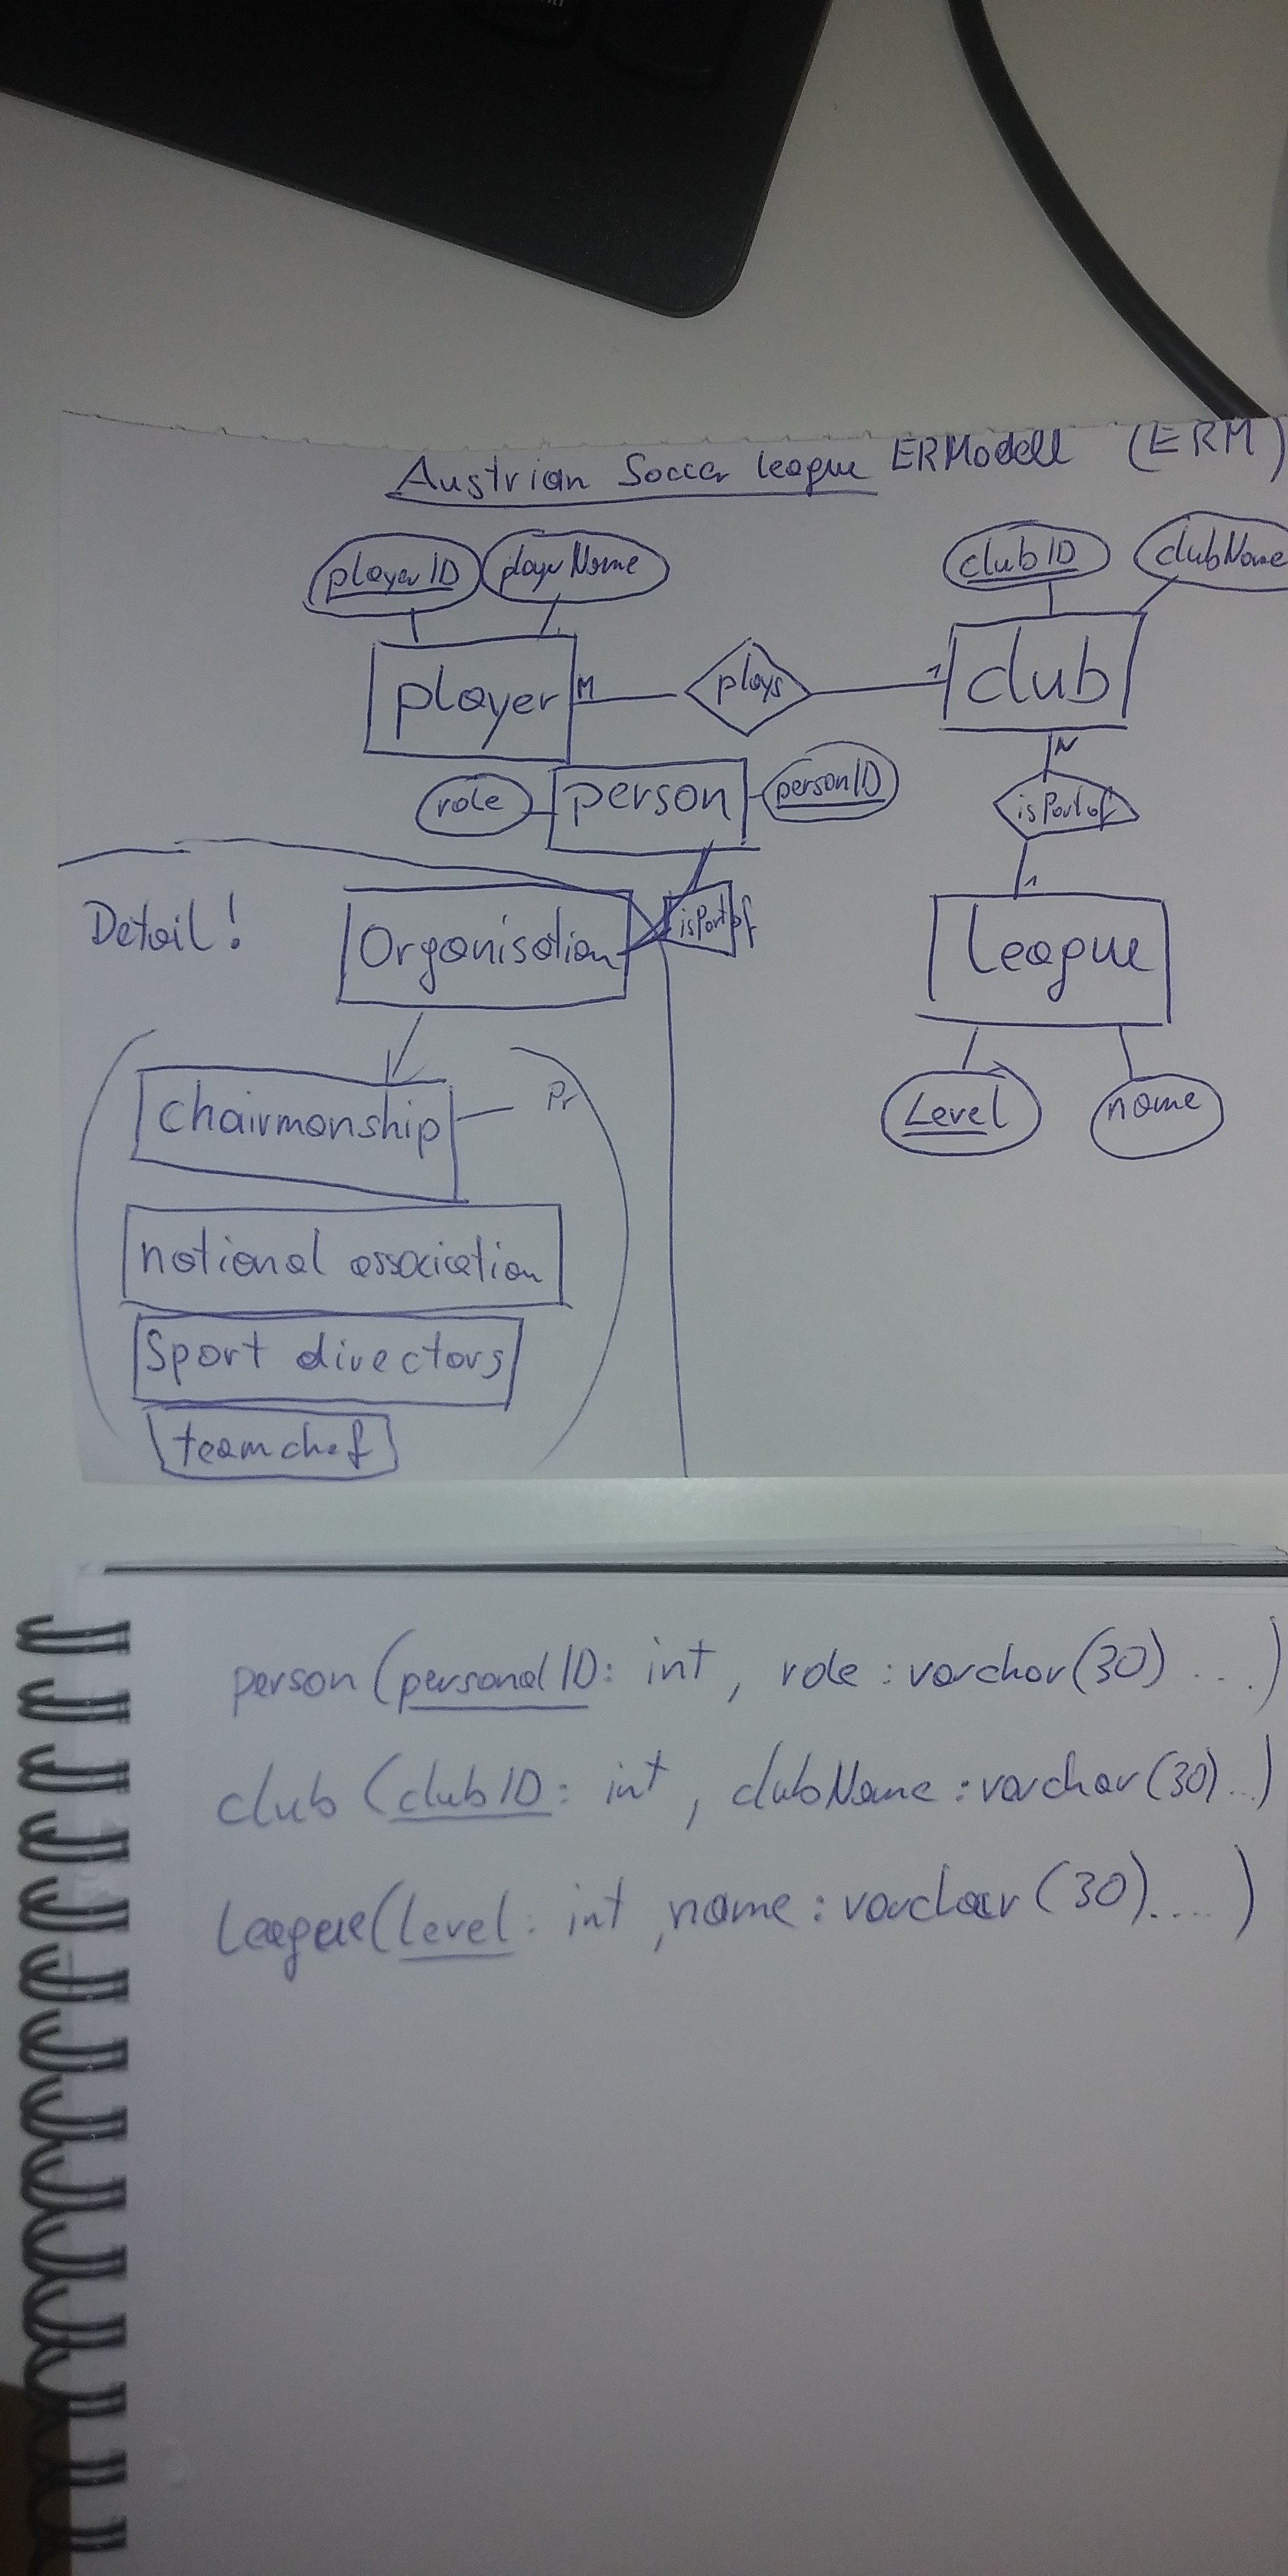 Austrian Soccer league ERModell (ERM)
playerID playerName clubID clubName
player M plays 1 club
N
role person personID isPartof
1
Detail! Organisation isPartof league
Chairmanship Pr
Level name
national association
Sport directors
teamchef
person (personalID: int, role: varchar(30) ...)
club (clubID: int, clubName: varchar(30)...)
League(level: int, name: varchar(30)....)